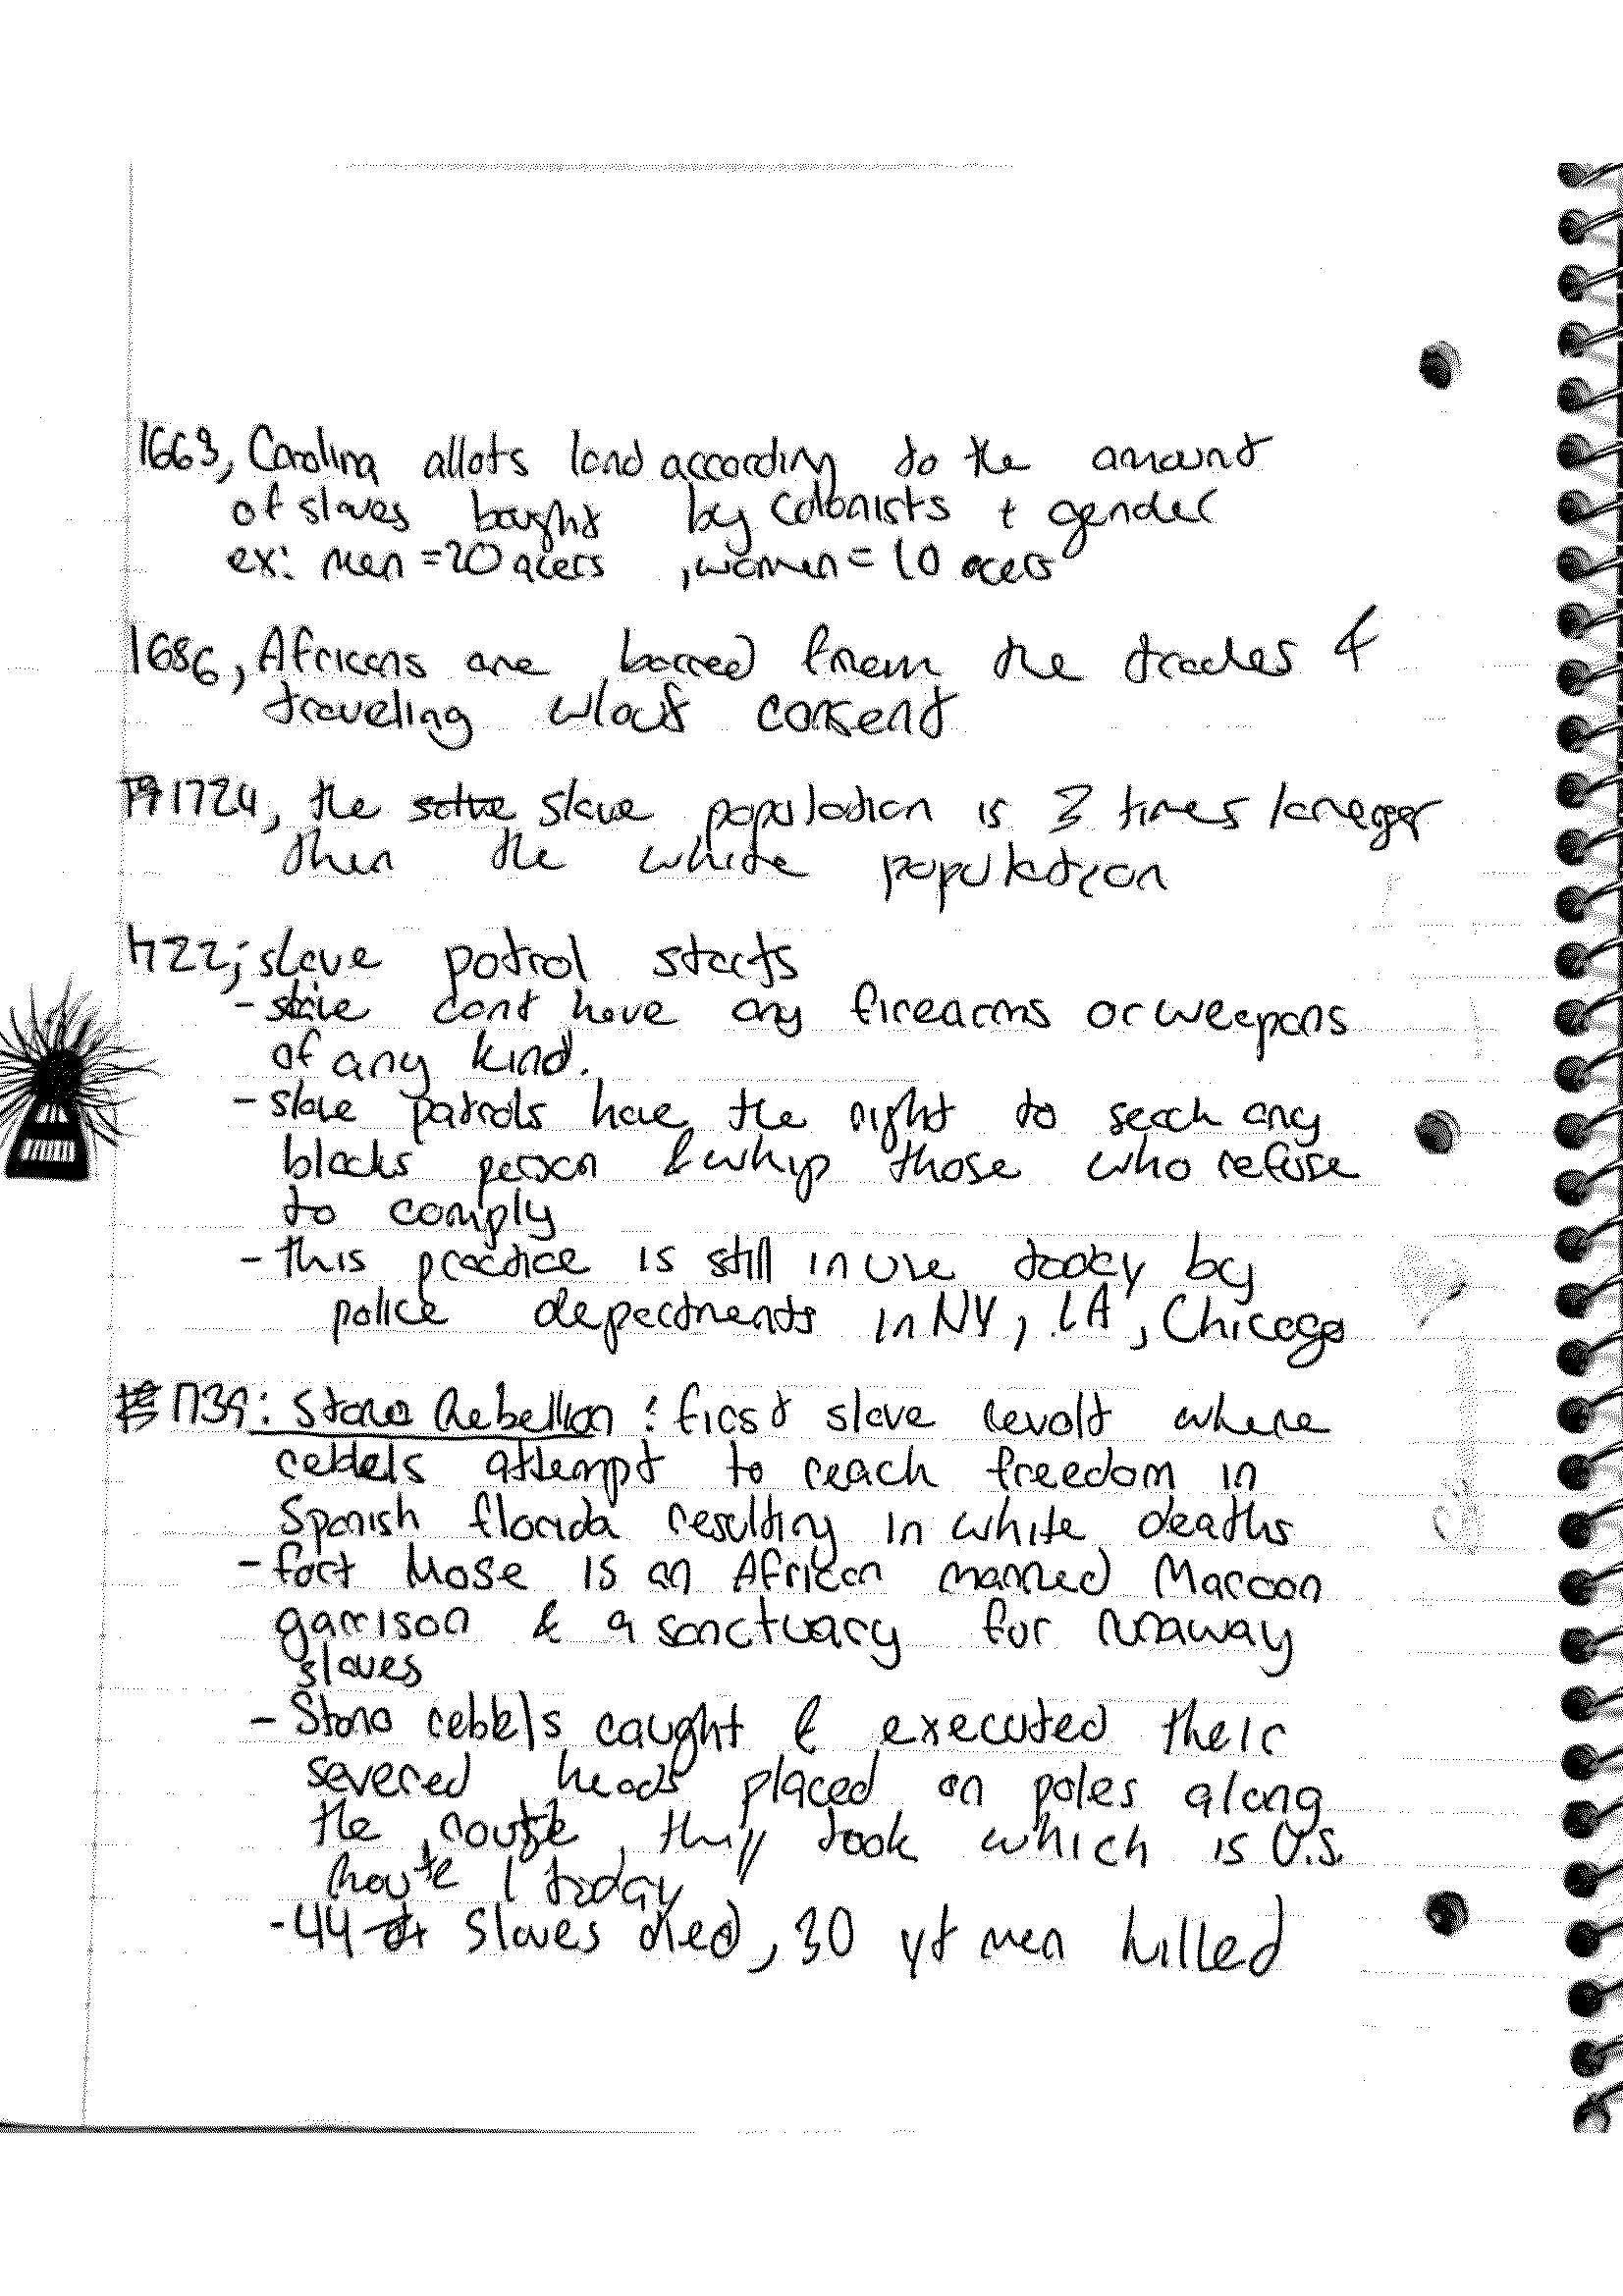 1663, Carolina allots land according to the amount
of slaves bought by colonists + gender
ex: men = 20 acers , women = 10 acers
1686, Africans are barred from the trades &
traveling w/out consent
1724, the solve slave population is 3 times larger
then the white population
1722; slave patrol starts
- slave cant have any firearms or weepons
of any kind.
- slave patrols have the right to seach any
blacks person & whip those who refuse
to comply
- this practice is still in use today by
police departments in NY, LA, Chicago
1739: Stono Rebellion : first slave revolt where
rebels attempt to reach freedom in
Spanish florida resulting in white deaths
- fort Mose is an African manned Maroon
garrison & a sanctuary for runaway
slaves
- Stono rebels caught & executed their
severed heads placed on poles along
the route, they took which is U.S.
route 1 today
- 44 slaves died, 30 yt men killed